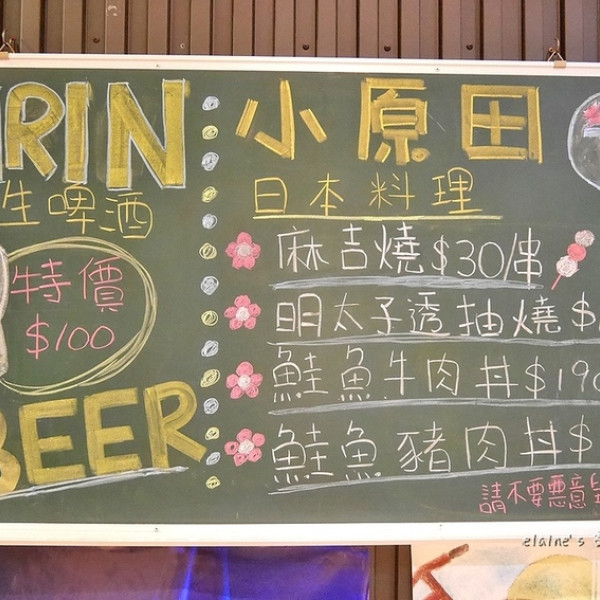 RIN
生啤酒
特價
$100
BEER
小原田
日本料理
麻吉燒$30/串
明太子透抽燒$
鮭魚牛肉丼$190
鮭魚豬肉丼$1
請不要惡意
elaine's